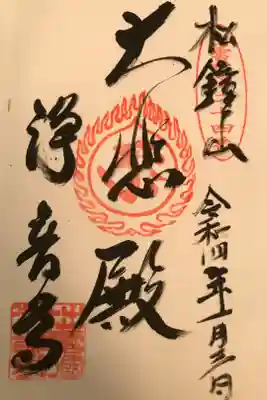 松鏡山
大悲殿
浄音寺
令和四年十一月三日